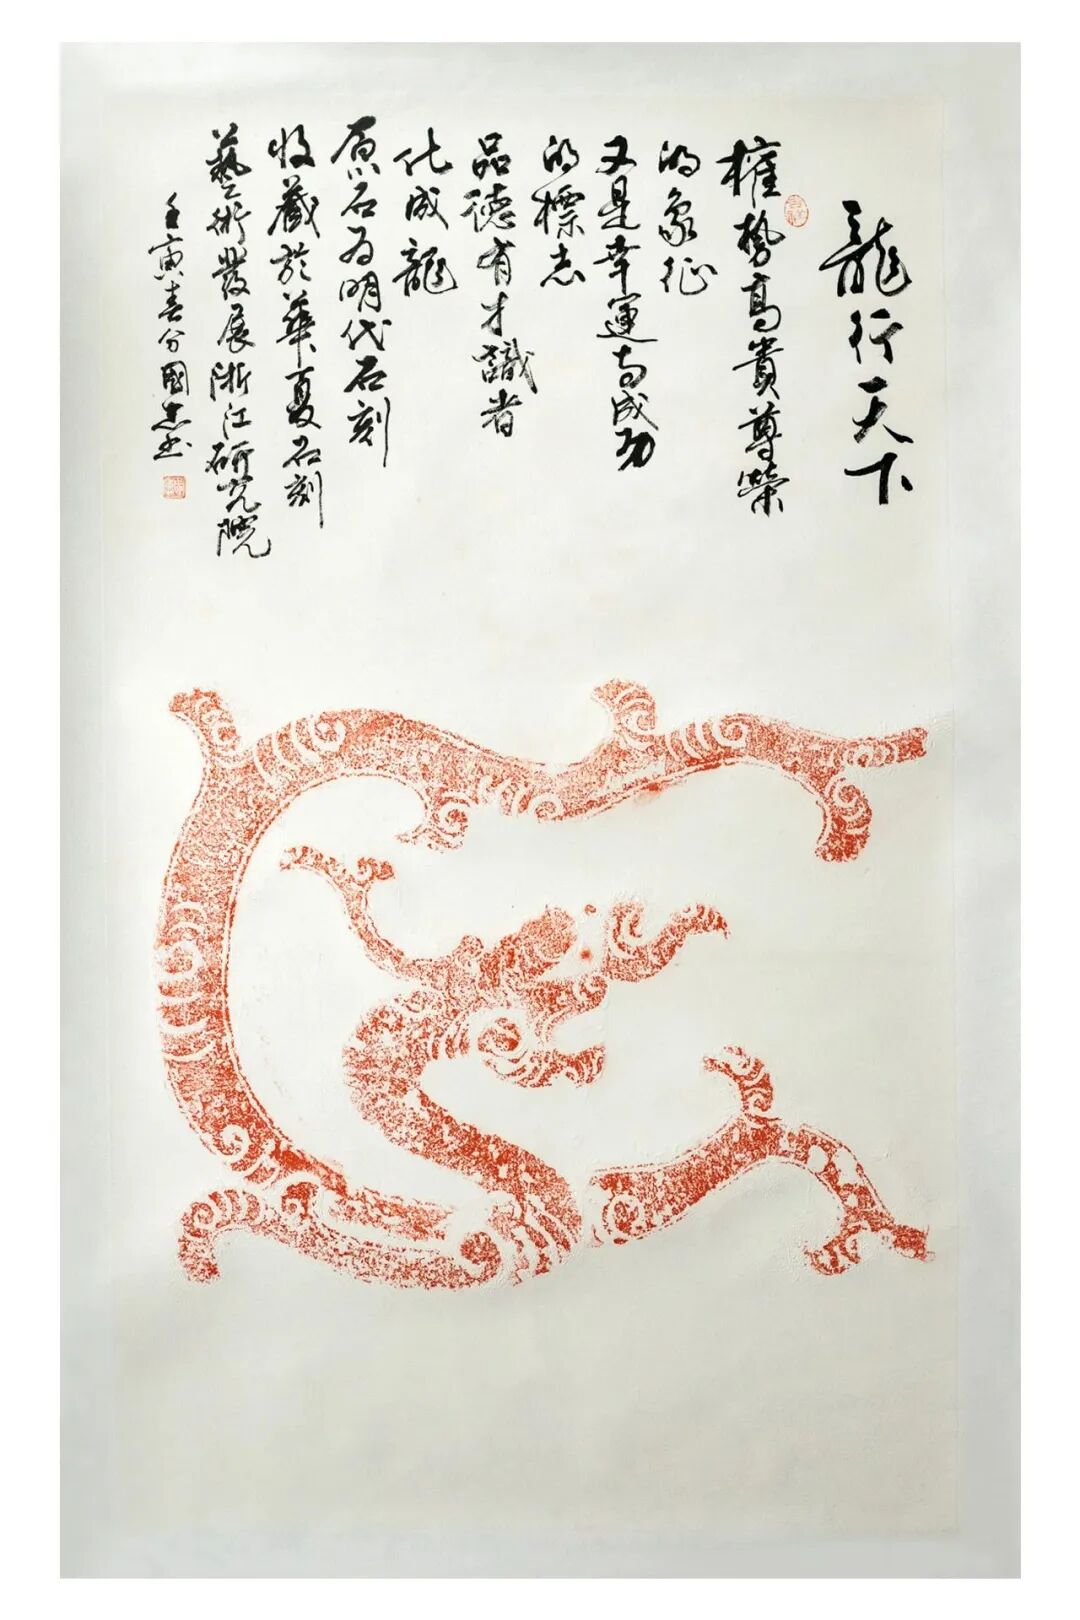 龍行天下
權勢高貴尊榮
的象征
又是幸運与成功
的標志
品德有才識者
化成龍
原石为明代石刻
收藏於華夏石刻
藝术發展浙江研究院
壬寅春分國忠书